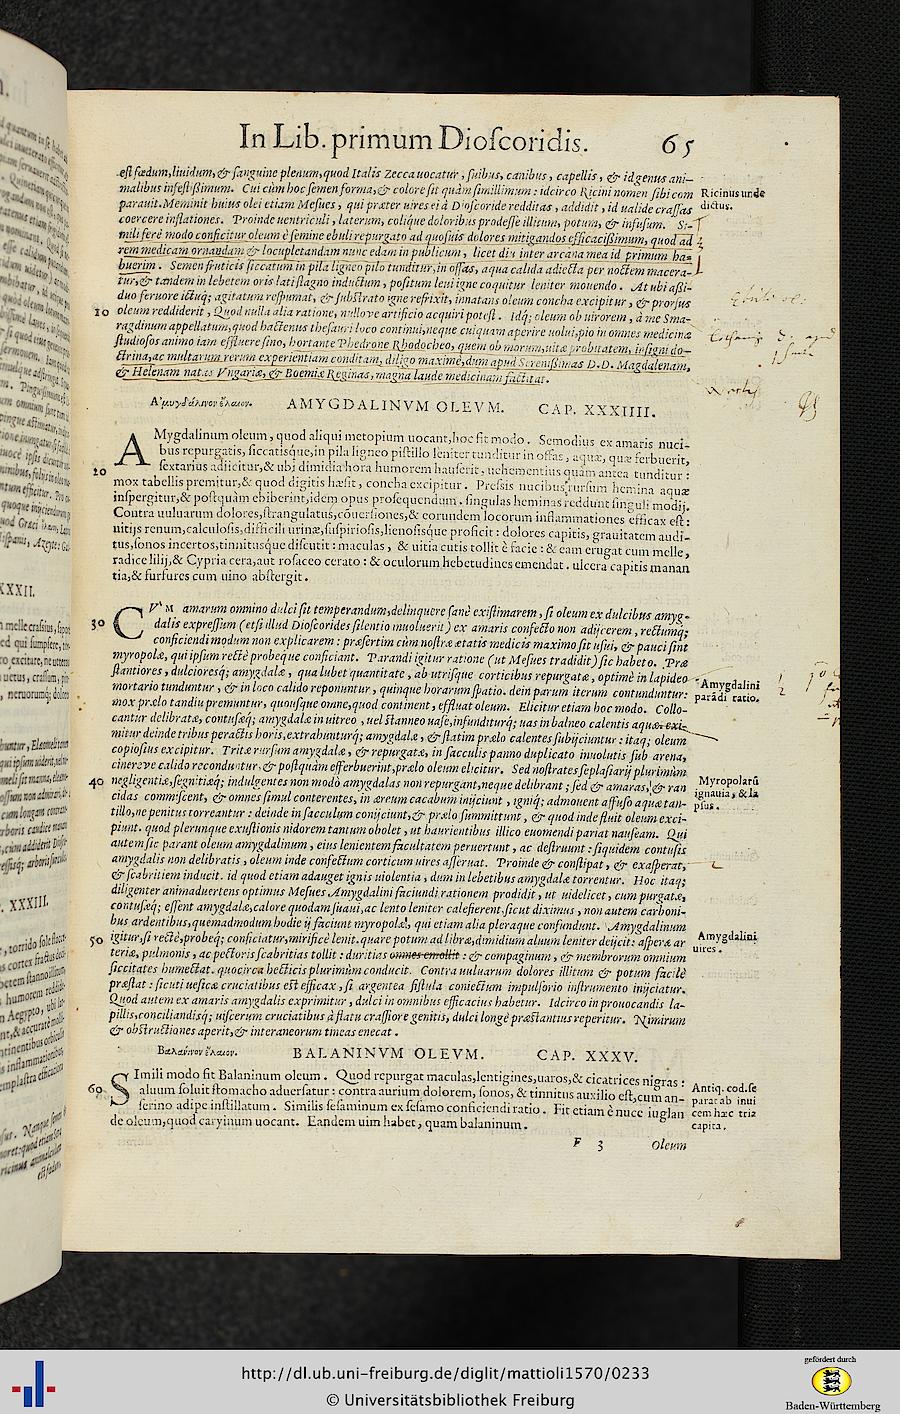 In Lib. primum Dioſcoridis. 65
eſt fœdum, liuidum, & ſanguine plenum, quod Italis Zecca uocatur, ſuibus, canibus, capellis, & id genus ani-
malibus infeſtißimum. Cui cùm hoc ſemen forma, & colore ſit quàm ſimillimum: idcirco Ricini nomen ſibi com
parauit. Meminit huius olei etiam Meſues, qui præter uires ei à Dioſcoride redditas, addidit, id ualide craſſas
coercere inflationes. Proinde uentriculi, laterum, colíque doloribus prodeſſe illitum, potum, & infuſum. Si-
mili ferè modo conficitur oleum è ſemine ebuli repurgato ad quoſuis dolores mitigandos efficacißimum, quod ad
rem medicam ornandam & locupletandam nunc edam in publicum, licet diu inter arcana mea id primum ha-
buerim. Semen fruticis ſiccatum in pila ligneo pilo tunditur, in offas, aqua calida adiecta per noctem macera-
tur, & tandem in lebetem oris lati ſtagno inductum, poſitum leui igne coquitur leniter mouendo. At ubi aßi-
duo feruore ictuq; agitatum reſpumat, & ſubſtrato igne refrixit, innatans oleum concha excipitur, & prorſus
10 oleum reddiderit, Quod nulla alia ratione, nulloue artificio acquiri poteſt. Idq; oleum ob uirorem, à me Sma-
ragdinum appellatum, quod hactenus theſauri loco continui, neque cuiquam aperire uolui, pio in omnes medicinæ
ſtudioſos animo iam effluere ſino, hortante Phedrone Rhodocheo, quem ob morum, uitæ probitatem, inſigni do-
ctrina, ac multarum rerum experientiam conditam, diligo maximè, dum apud Sereniſſimas D.D. Magdalenam,
& Helenam natas Vngariæ, & Boemiæ Reginas, magna laude medicinam factitat.
Ricinus unde
dictus.
Ἀμυγδάλινον ἔλαιον. AMYGDALINVM OLEVM. CAP. XXXIIII.
AMygdalinum oleum, quod aliqui metopium uocant, hoc fit modo. Semodius ex amaris nuci-
bus repurgatis, ſiccatisque, in pila ligneo piſtillo leniter tunditur in offas, aquæ, quæ ferbuerit,
20 ſextarius adijcitur, & ubi dimidia hora humorem hauſerit, uehementius quàm antea tunditur:
mox tabellis premitur, & quod digitis hæſit, concha excipitur. Preſsis nucibus rurſum hemina aquæ
inſpergitur, & poſtquàm ebiberint, idem opus proſequendum. ſingulas heminas reddunt ſinguli modij.
Contra uuluarum dolores, ſtrangulatus, cõuerſiones, & eorundem locorum inflammationes efficax eſt:
uitijs renum, calculoſis, difficili urinæ, ſuſpirioſis, lienoſisque proficit: dolores capitis, grauitatem audi-
tus, ſonos incertos, tinnitusque diſcutit: maculas, & uitia cutis tollit è facie: & eam erugat cum melle,
radice lilij, & Cypria cera, aut roſaceo cerato: & oculorum hebetudines emendat. ulcera capitis manan
tia, & furfures cum uino abſtergit.
CVM amarum omnino dulci ſit temperandum, delinquere ſanè exiſtimarem, ſi oleum ex dulcibus amyg-
30 dalis expreſſum (etſi illud Dioſcorides ſilentio inuoluerit) ex amaris confecto non adijcerem, rectumq;
conficiendi modum non explicarem: præſertim cùm noſtræ ætatis medicis maximo ſit uſui, & pauci ſint
myropolæ, qui ipſum rectè probeque conficiant. Parandi igitur ratione (ut Meſues tradidit) ſic habeto. Præ
ſtantiores, dulcioresq; amygdalæ, qua lubet quantitate, ab utriſque corticibus repurgatæ, optimè in lapideo
mortario tunduntur, & in loco calido reponuntur, quinque horarum ſpatio. dein parum iterum contunduntur:
mox prælo tandiu premuntur, quouſque omne, quod continent, effluat oleum. Elicitur etiam hoc modo. Collo-
cantur delibratæ, contuſæq; amygdalæ in uitreo, uel ſtanneo uaſe, infunditurq; uas in balneo calentis aquæ: exi-
mitur deinde tribus peractis horis, extrahunturq; amygdalæ, & ſtatim prælo calentes ſubijciuntur: itaq; oleum
copioſius excipitur. Tritæ rurſum amygdalæ, & repurgatæ, in ſacculis panno duplicato inuolutis ſub arena,
cinereve calido reconduntur, & poſtquàm efferbuerint, prælo oleum elicitur. Sed noſtrates ſeplaſiarij plurimùm
40 negligentiæ, ſegnitiæq; indulgentes non modò amygdalas non repurgant, neque delibrant; ſed & amaras, & ran
cidas commiſcent, & omnes ſimul conterentes, in æreum cacabum inijciunt, igniq; admouent affuſo aquæ tan-
tillo, ne penitus torreantur: deinde in ſacculum conijciunt, & prælo ſummittunt, & quod inde fluit oleum exci-
piunt. quod plerunque exuſtionis nidorem tantum obolet, ut haurientibus illico euomendi pariat nauſeam. Qui
autem ſic parant oleum amygdalinum, eius lenientem facultatem peruertunt, ac deſtruunt: ſiquidem contuſis
amygdalis non delibratis, oleum inde confectum corticum uires aſſeruat. Proinde & conſtipat, & exaſperat,
& ſcabritiem inducit. id quod etiam adauget ignis uiolentia, dum in lebetibus amygdalæ torrentur. Hoc itaq;
diligenter animaduertens optimus Meſues Amygdalini faciundi rationem prodidit, ut uidelicet, cum purgatæ,
contuſæq; eſſent amygdalæ, calore quodam ſuaui, ac lento leniter calefierent, ſicut diximus, non autem carboni-
bus ardentibus, quemadmodum hodie ij faciunt myropolæ, qui etiam alia pleraque confundunt. Amygdalinum
50 igitur, ſi rectè, probeq; conficiatur, mirificè lenit. quare potum ad libræ, dimidium aluum leniter deijcit: aſperæ ar
teriæ, pulmonis, ac pectoris ſcabritias tollit: duritias omnes emollit: & compaginum, & membrorum omnium
ſiccitates humectat. quocirca hecticis plurimùm conducit. Contra uuluarum dolores illitum & potum facilè
præſtat: ſicuti ueſicæ cruciatibus eſt efficax, ſi argentea fiſtula coniectum impulſorio inſtrumento inijciatur.
Quod autem ex amaris amygdalis exprimitur, dulci in omnibus efficacius habetur. Idcirco in prouocandis la-
pillis, conciliandisq; uiſcerum cruciatibus à flatu craſſiore genitis, dulci longè præſtantius reperitur. Nimirum
& obſtructiones aperit, & interaneorum tineas enecat.
Amygdalini
parãdi ratio.
Myropolarũ
ignauia, & la
pſus.
Amygdalini
uires.
Βαλανινον ἔλαιον. BALANINVM OLEVM. CAP. XXXV.
SImili modo fit Balaninum oleum. Quod repurgat maculas, lentigines, uaros, & cicatrices nigras:
60 aluum ſoluit ſtomacho aduerſatur: contra aurium dolorem, ſonos, & tinnitus auxilio eſt, cum an-
ſerino adipe inſtillatum. Similis ſeſaminum ex ſeſamo conficiendi ratio. Fit etiam è nuce iuglan
de oleum, quod caryinum uocant. Eandem uim habet, quam balaninum.
Antiq. cod. ſe
parat ab inui
cem hæc tria
capita.
F 3 Oleum
http://dl.ub.uni-freiburg.de/diglit/mattioli1570/0233
© Universitätsbibliothek Freiburg
gefördert durch
Baden-Württemberg